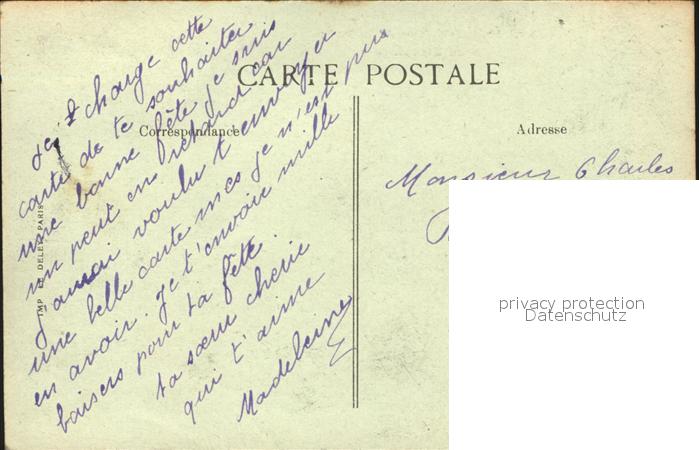 CARTE POSTALE
Correspondance
Adresse
Je charge cette
carte de te souhaiter
une bonne fête je suis
un peut en retard car
j'aurai voulu t'envoyer
une belle carte mes je n'est pus
en avoir. Je t'envoie mille
baisers pour ta fête.
ta sœur cherie
qui t'aime
Madeleine
Monsieur Charles
privacy protection
Datenschutz
IMP. DELEY PARIS